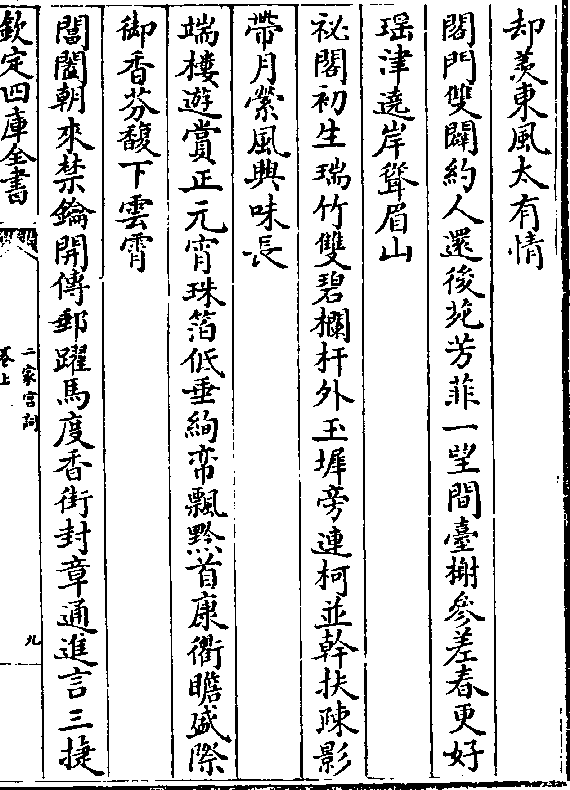 却羨東風太有情
閤門雙闢約人還後苑芳菲一望間臺榭參差春更好
瑶津遶岸聳眉山
祕閣初生瑞竹雙碧欄杆外玉墀旁連柯並幹扶疎影
帶月縈風興味長
端樓遊賞正元宵珠箔低垂絢帟飄黔首康衢瞻盛際
御香芬馥下雲霄
閶闔朝來禁鑰開傳郵躍馬度香街封章通進言三捷
欽定四庫全書
二家宮詞
卷上
九